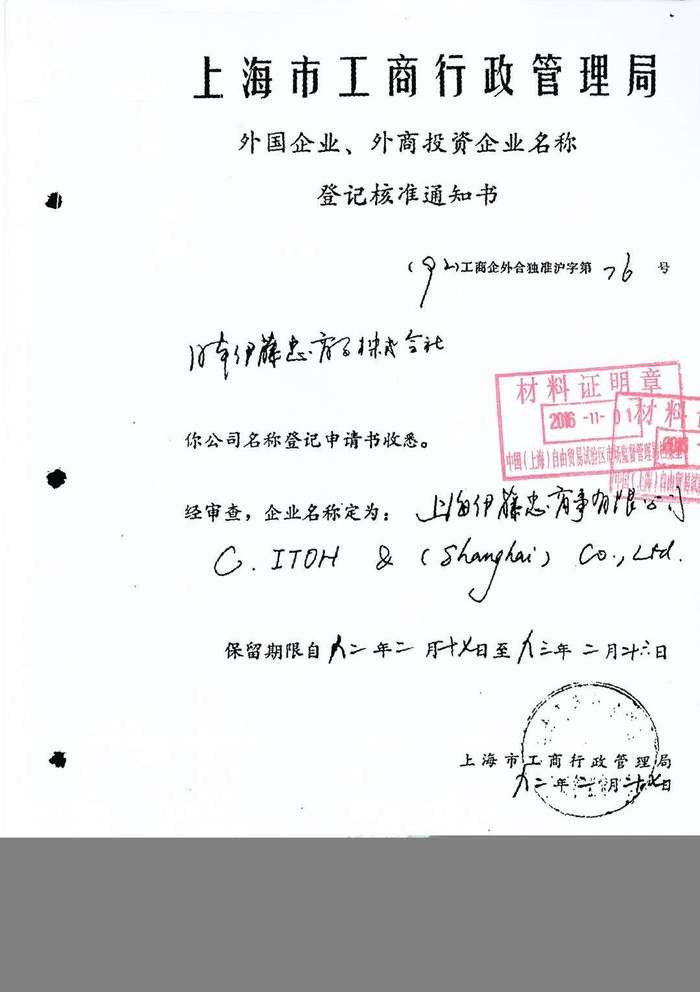 上海市工商行政管理局
外国企业、外商投资企业名称
登记核准通知书
(92)工商企外合独准沪字第76号
日本伊藤忠商事株式会社
材料证明章
2016-11-01
中国(上海)自由贸易试验区市场监督管理局
材料
你公司名称登记申请书收悉。
经审查,企业名称定为:上海伊藤忠商事有限公司
C. ITOH & (Shanghai) Co., Ltd.
保留期限自九二年二月廿七日至九三年二月廿六日
上海市工商行政管理局
九二年二月二十七日